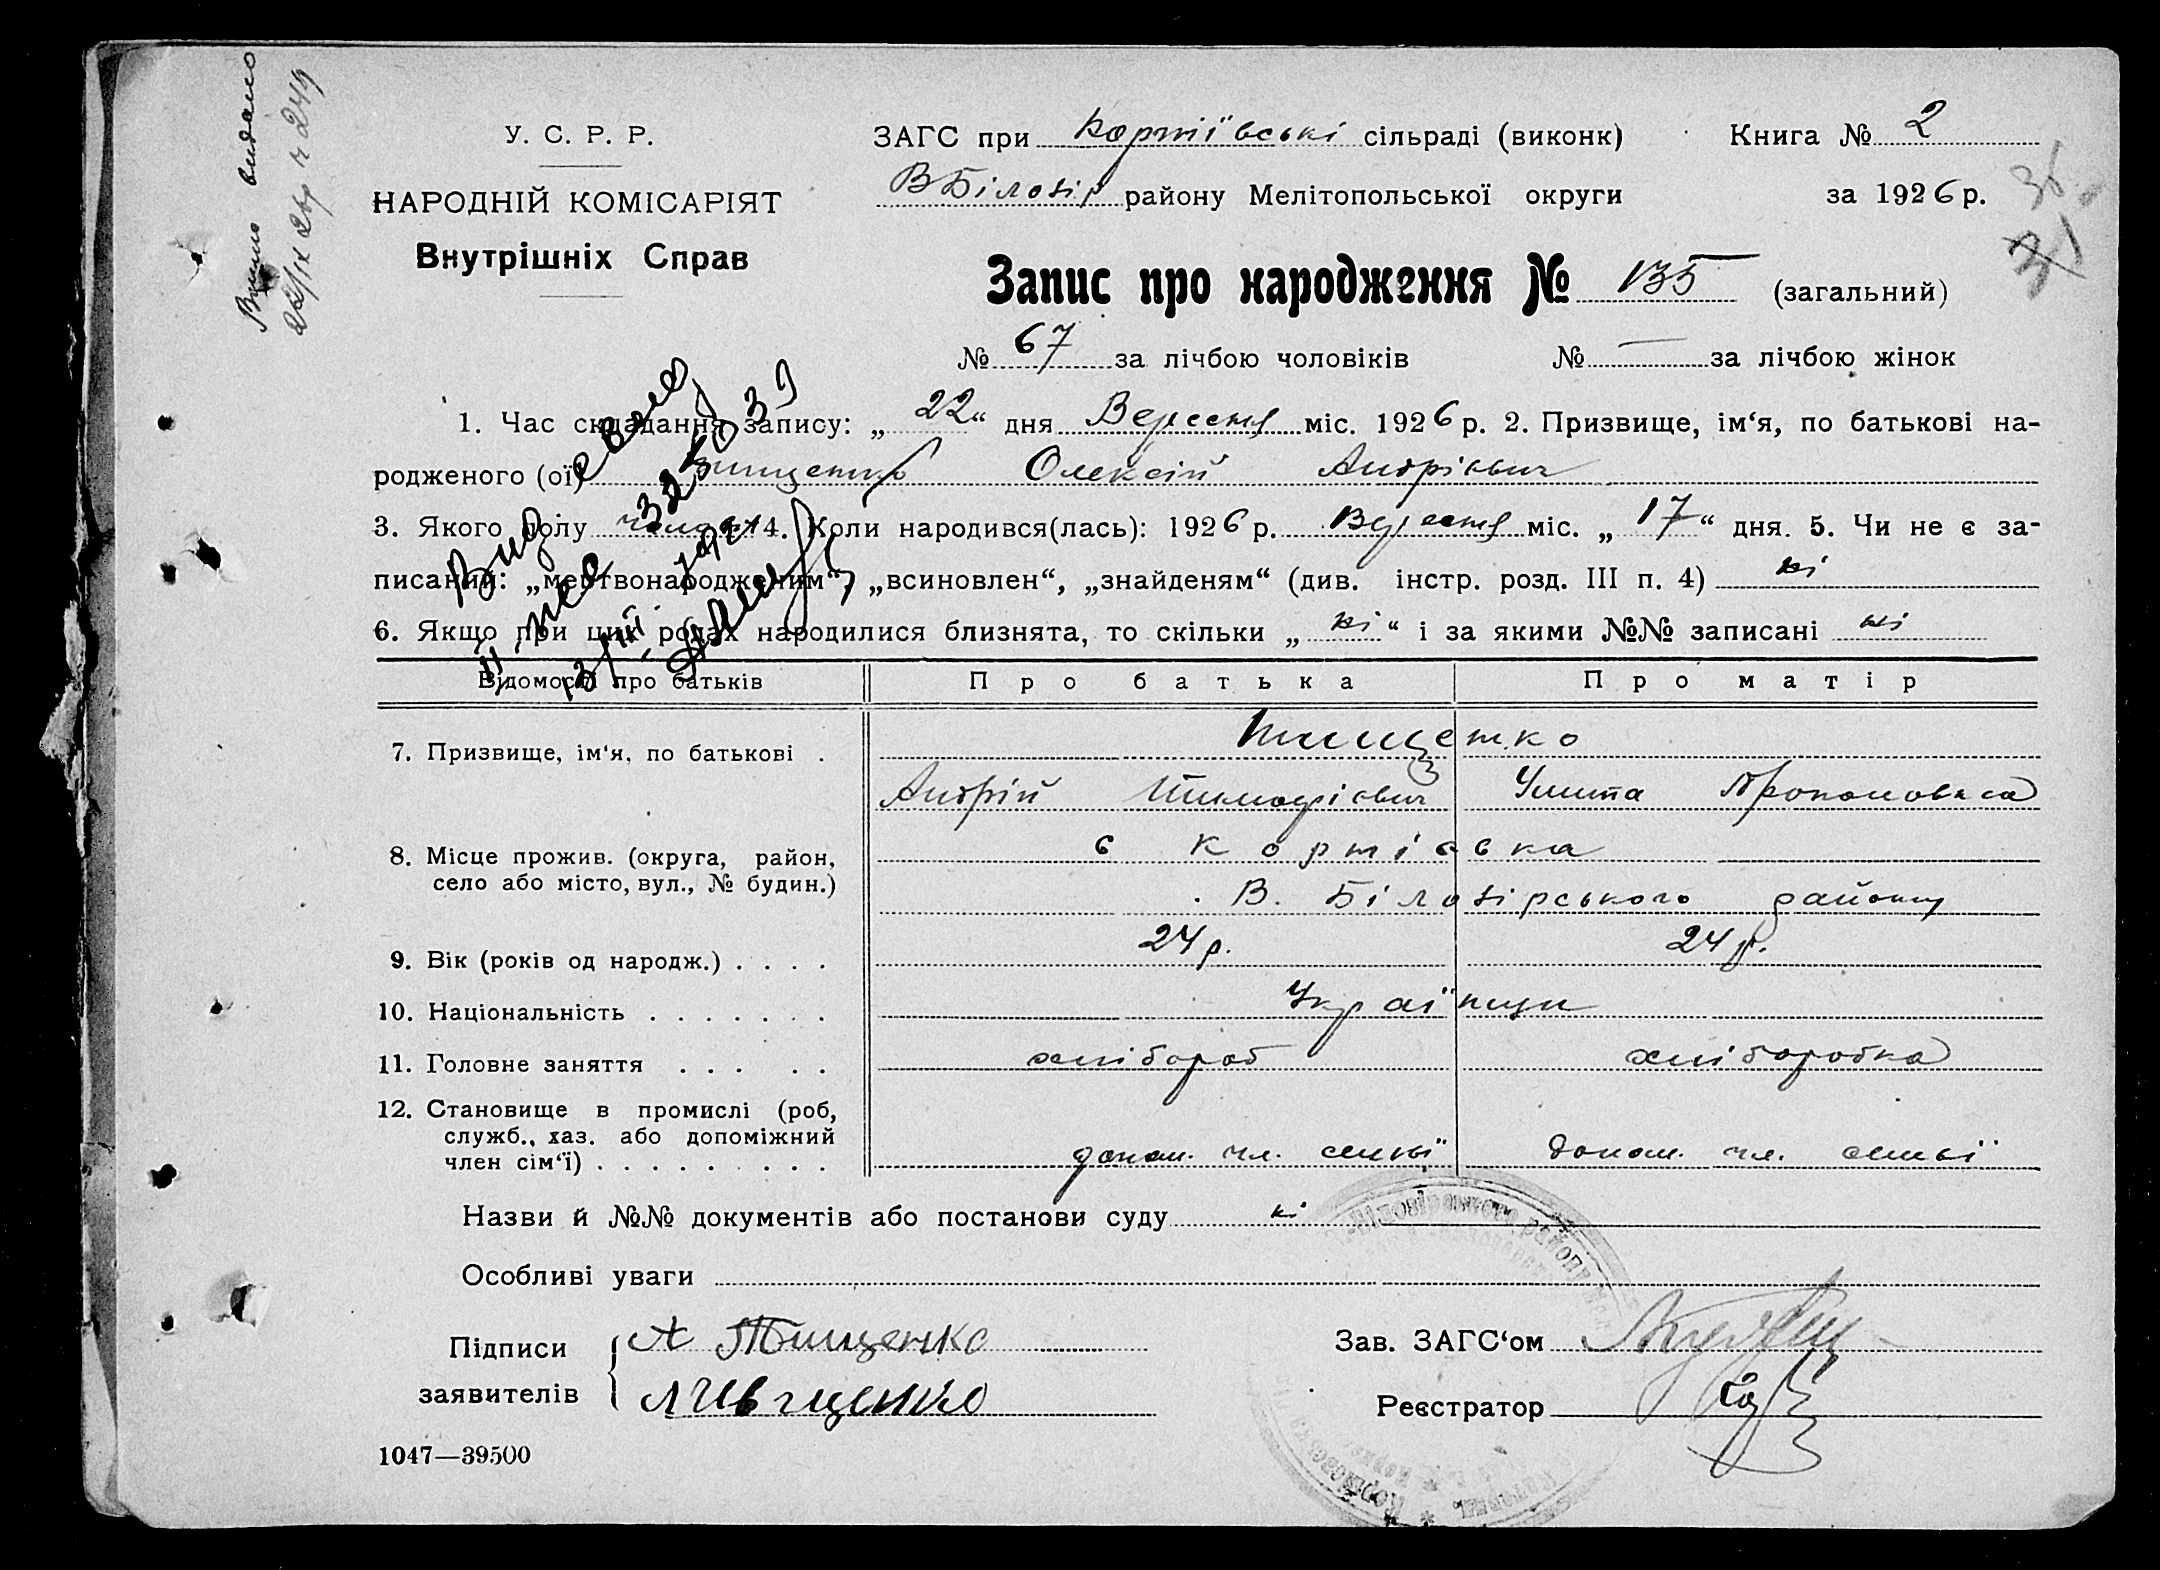 У. С. Р. Р.
НАРОДНІЙ КОМІСАРІЯТ
Внутрішніх Справ
ЗАГС при Кортіївські сільраді (виконк) Книга № 2
В Білозір району Мелітопольської округи за 1926 р.
Запис про народження № 135 (загальний)
№ 67 за лічбою чоловіків № — за лічбою жінок
1. Час складання запису: „22“ дня Вересня міс. 1926 р. 2. Призвище, ім‘я, по батькові на-
родженого (ої) Тищенко Олексій Андрієвич
3. Якого полу 4. Коли народився(лась): 1926 р. Вересня міс. „17“ дня. 5. Чи не є за-
писаний: „мертвонародженим“, „всиновлен“, „знайденям“ (див. інстр. розд. III п. 4) ні
6. Якщо при цих родах народилися близнята, то скільки „ні“ і за якими №№ записані ні
Відомості про батьків Про батька Про матір
7. Призвище, ім‘я, по батькові . Тищенко
Андрій Тимофієвич Улита
8. Місце прожив. (округа, район, с Кортіївка
село або місто, вул., № будин.) В. Білозірського району
9. Вік (років од народж.) . . . . 24 р. 24 р.
10. Національність . . . . . . . Українци
11. Головне заняття . . . . . хлібороб хліборобка
12. Становище в промислі (роб,
служб., хаз. або допоміжний
член сім‘ї) . . . . . . . . . допом. чл. семьї допом. чл. семьї
Назви й №№ документів або постанови суду ні
Особливі уваги
Підписи А Тищенко Зав. ЗАГС‘ом
заявителів Реєстратор
1047—39500